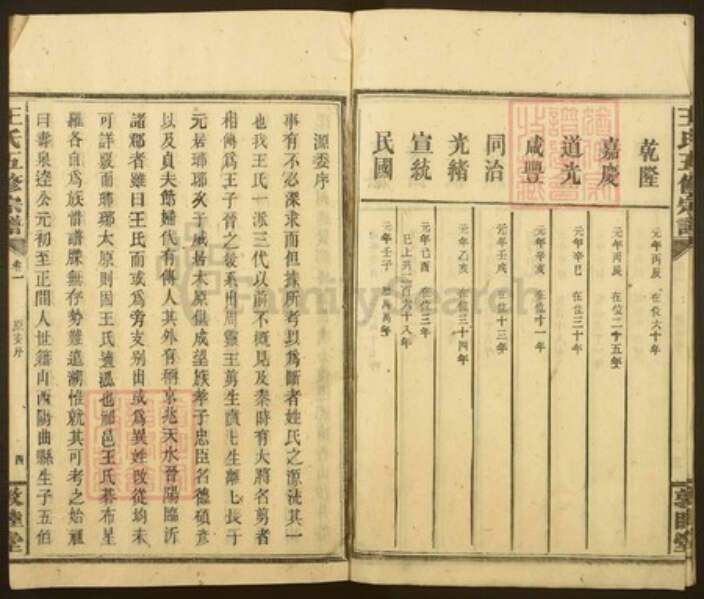 乾隆 元年丙辰 在位六十年
嘉慶 元年丙辰 在位二十五年
道光 元年辛巳 在位三十年
咸豐 元年辛亥 在位十一年
同治 元年壬戌 在位十三年
光緒 元年乙亥 在位三十四年
宣統 元年己酉 在位三年
已上共二百六十八年
民國 元年壬子 萬萬年
王氏五修宗譜 卷一 源委序 四 敦睦堂
源委序
事有不必深求而但據所者以為斷者姓氏之源流其一
也我王氏一派三代以前不概見及秦時有大將名剪者
相傳為王子晉之後系出周靈王剪生賁賁生離離長子
元居瑯琊次子威居太原俱成望族孝子忠臣名德碩彥
以及貞夫節婦代有傳人其外有稱京兆天水晉陽臨沂
諸郡者雖曰王氏而或為旁支別出或為異姓改從均未
可詳襄而瑯琊太原則因王氏遠派也邵邑王氏碁布星
羅各自為族惜譜牒無存勢難追溯惟就其可考之始祖
曰壽泉逵公元初至正間人世籍山西陽曲縣生子五伯
王氏五修宗譜
敦睦堂
FamilySearch